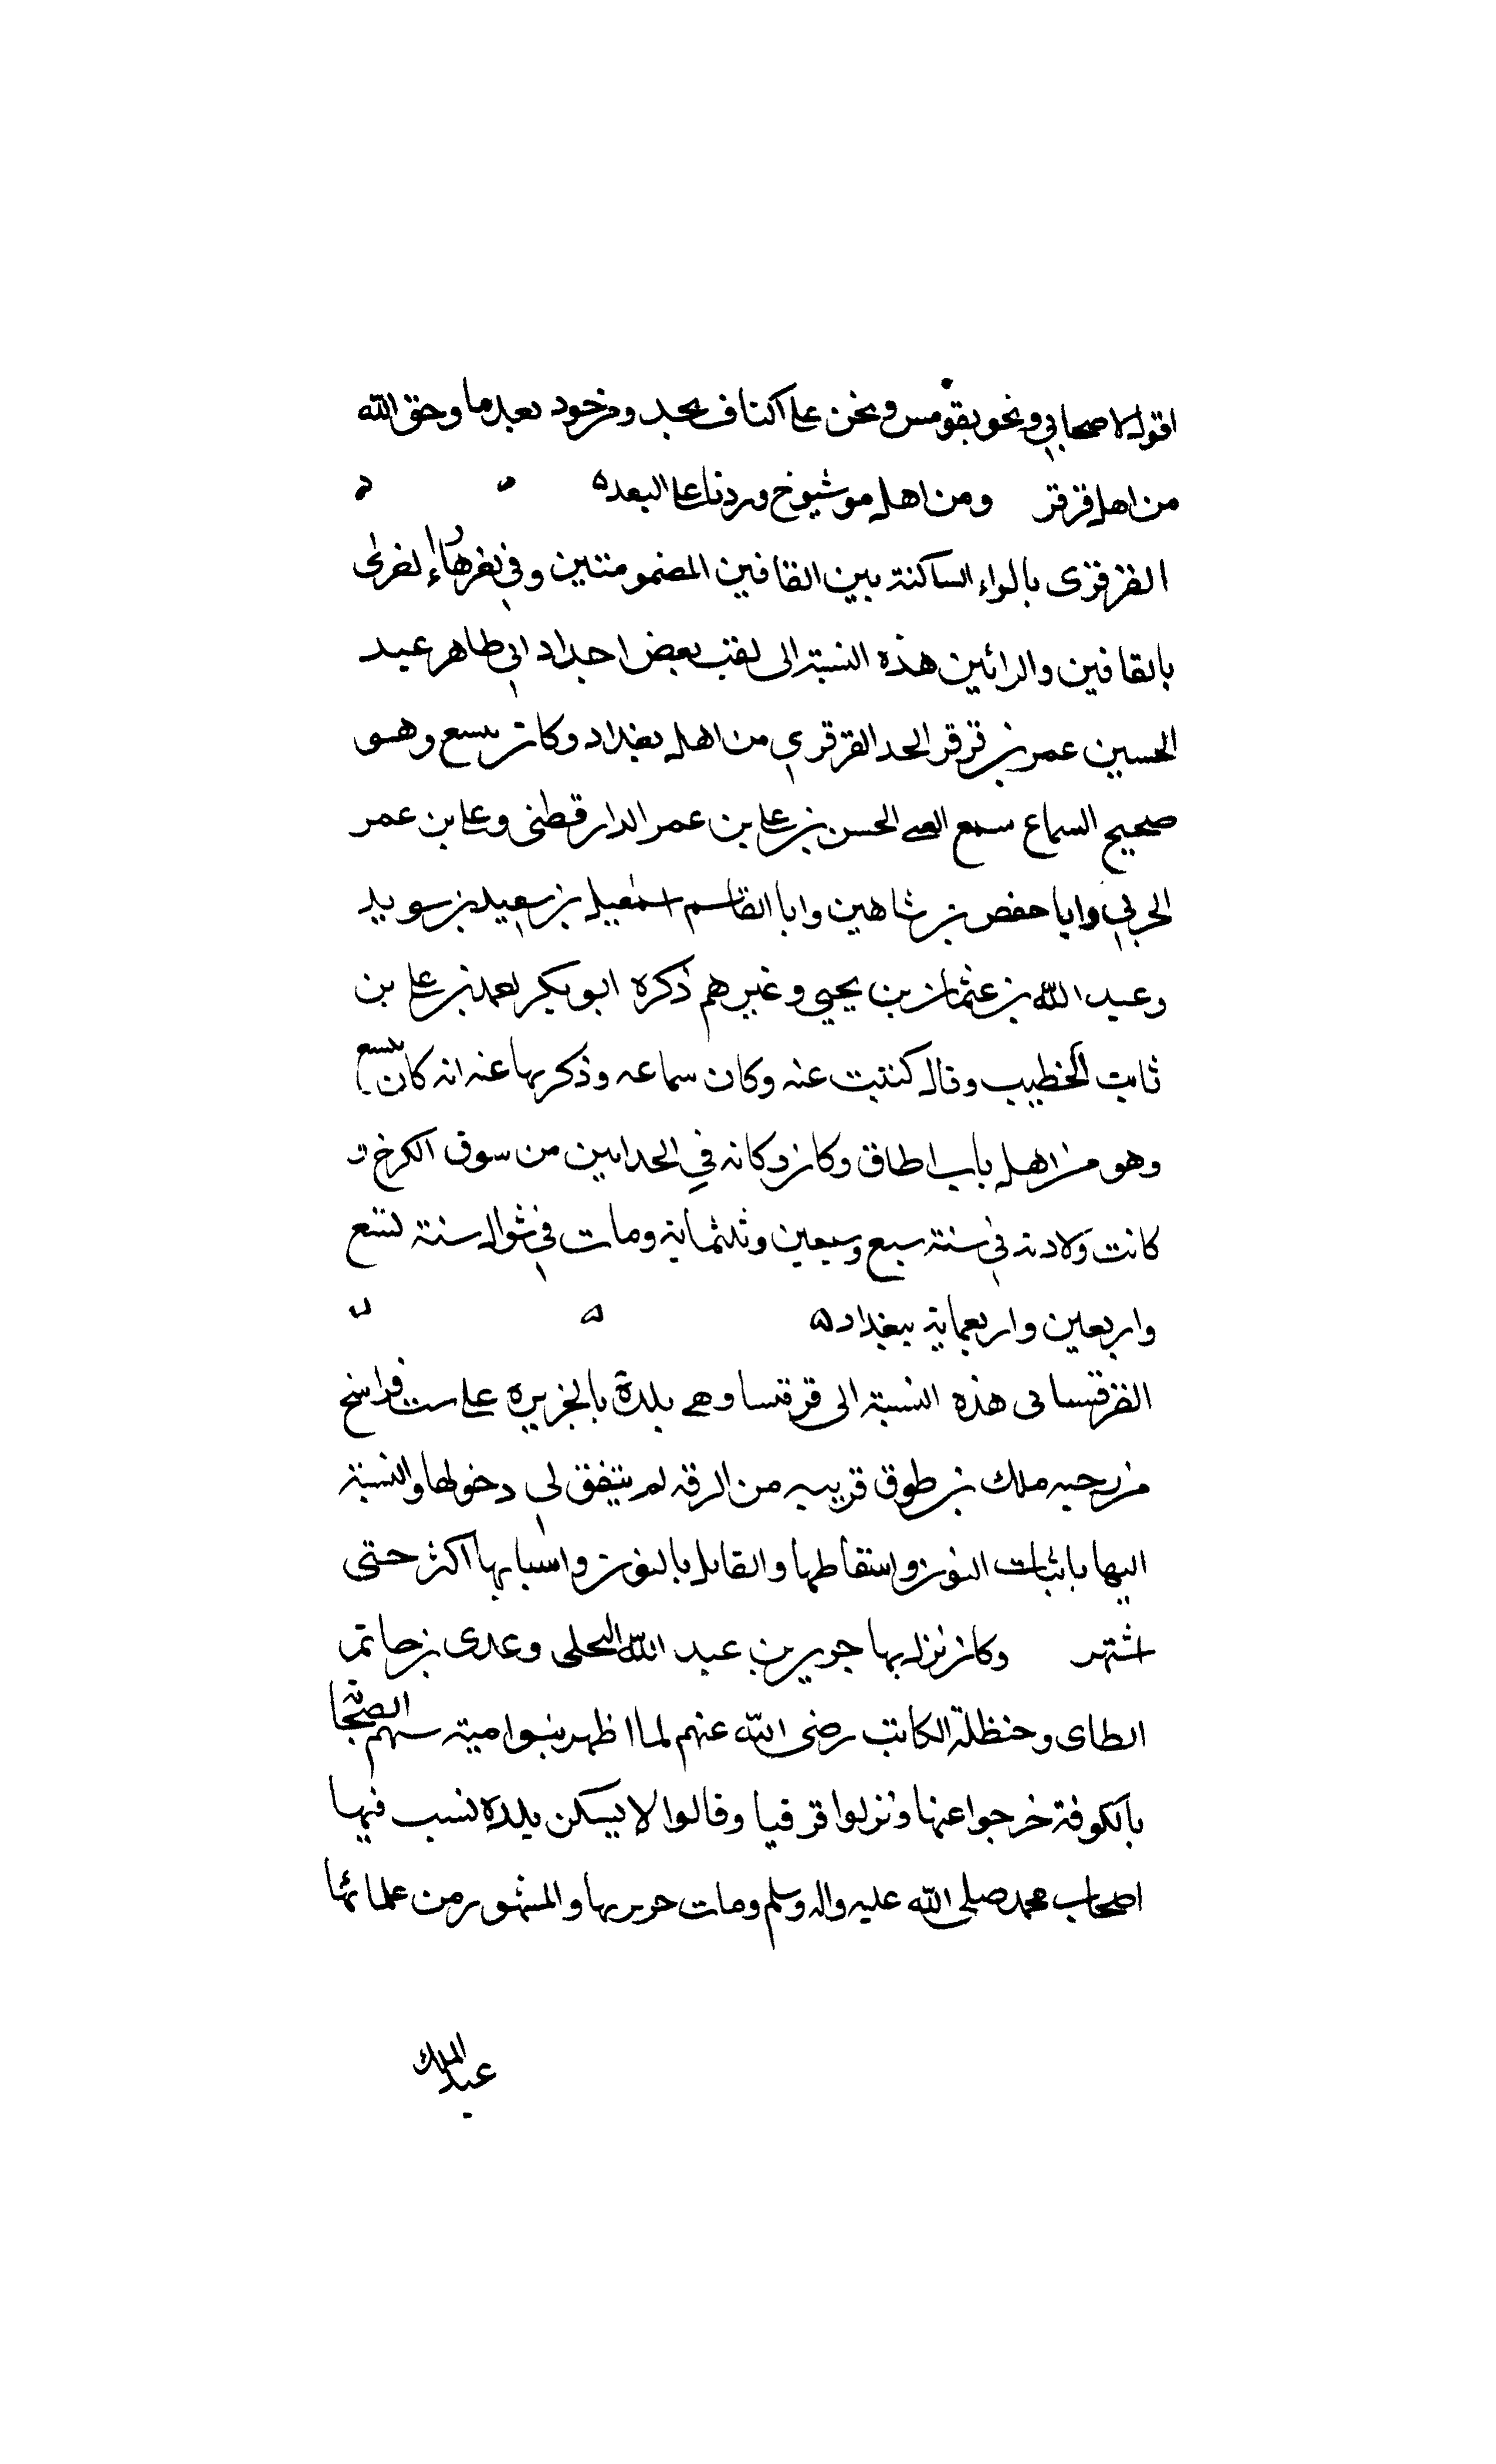 اقول لاصحابي ونحو بقومس ونحن على اكتاف محد ومرخود بعد ما وحق الله
من اهل قرقر ومن اهل موشيوخ وردنا على البعد ه
القرقرى بالراء الساكنة بين القافين المضمومتين وفي اخرها راء اخرى
بالقافين والرائين هذه النسبة الى لقب بعض اجداد ابي طاهر عبد
الحسين عمر بن قرقر الحد القرقري من اهل بغداد وكان يسمع وهو
صحيح السماع سمع الحسن بن على بن عمر الدارقطنى وعلى بن عمر
الحربي وابا حفص بن شاهين وابا القاسم اسمعيل بن سعيد بن سويد
وعبد الله بن عثمان بن يحيي وغيرهم ذكره ابو بكر احمد بن على بن
ثابت الخطيب وقال كتبت عنه وكان سماعه وذكر بها عنه انه كان يسمع
وهو من اهل باب الطاق وكان دكانه في الحدايين من سوق الكرخ و
كانت ولادته في سنة سبع وسبعين وثلثماية ومات في شوال سنة تسع
واربعين واربعماية ببغداد ه
القرقسانى هذه النسبة الى قرقسا وهى بلدة بالجزيره على ست فراسخ
من رحبه ملك بن طوق قريبه من الرقه لم يتفق لي دخولها والنسبة
اليها باثبات النون واسقاطها والقايل بالنون واسبابها اكثر حتى
اشتهر وكان نزل بها جرير بن عبد الله البجلى وعدى بن حاتم
الطاى وحنظلة الكاتب رضى الله عنهم لما اظهر بنوامية سهم الصحا
بالكوفة خرجوا عنها ونزلوا قرقيا وقالوا لا يسكن بلده نسب فيها
اصحاب محمد صلى الله عليه واله وسلم ومات جرير بها والمشهور من علمائها
عبد الملك